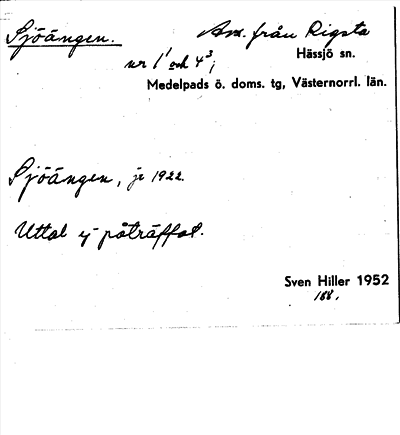 Sjöängen. Avs. från Rigsta
nr 1¹ och 4³;
Hässjö sn.
Medelpads ö. doms. tg, Västernorrl. län.
Sjöängen, je 1922.
Uttal ej påträffat.
Sven Hiller 1952
188.